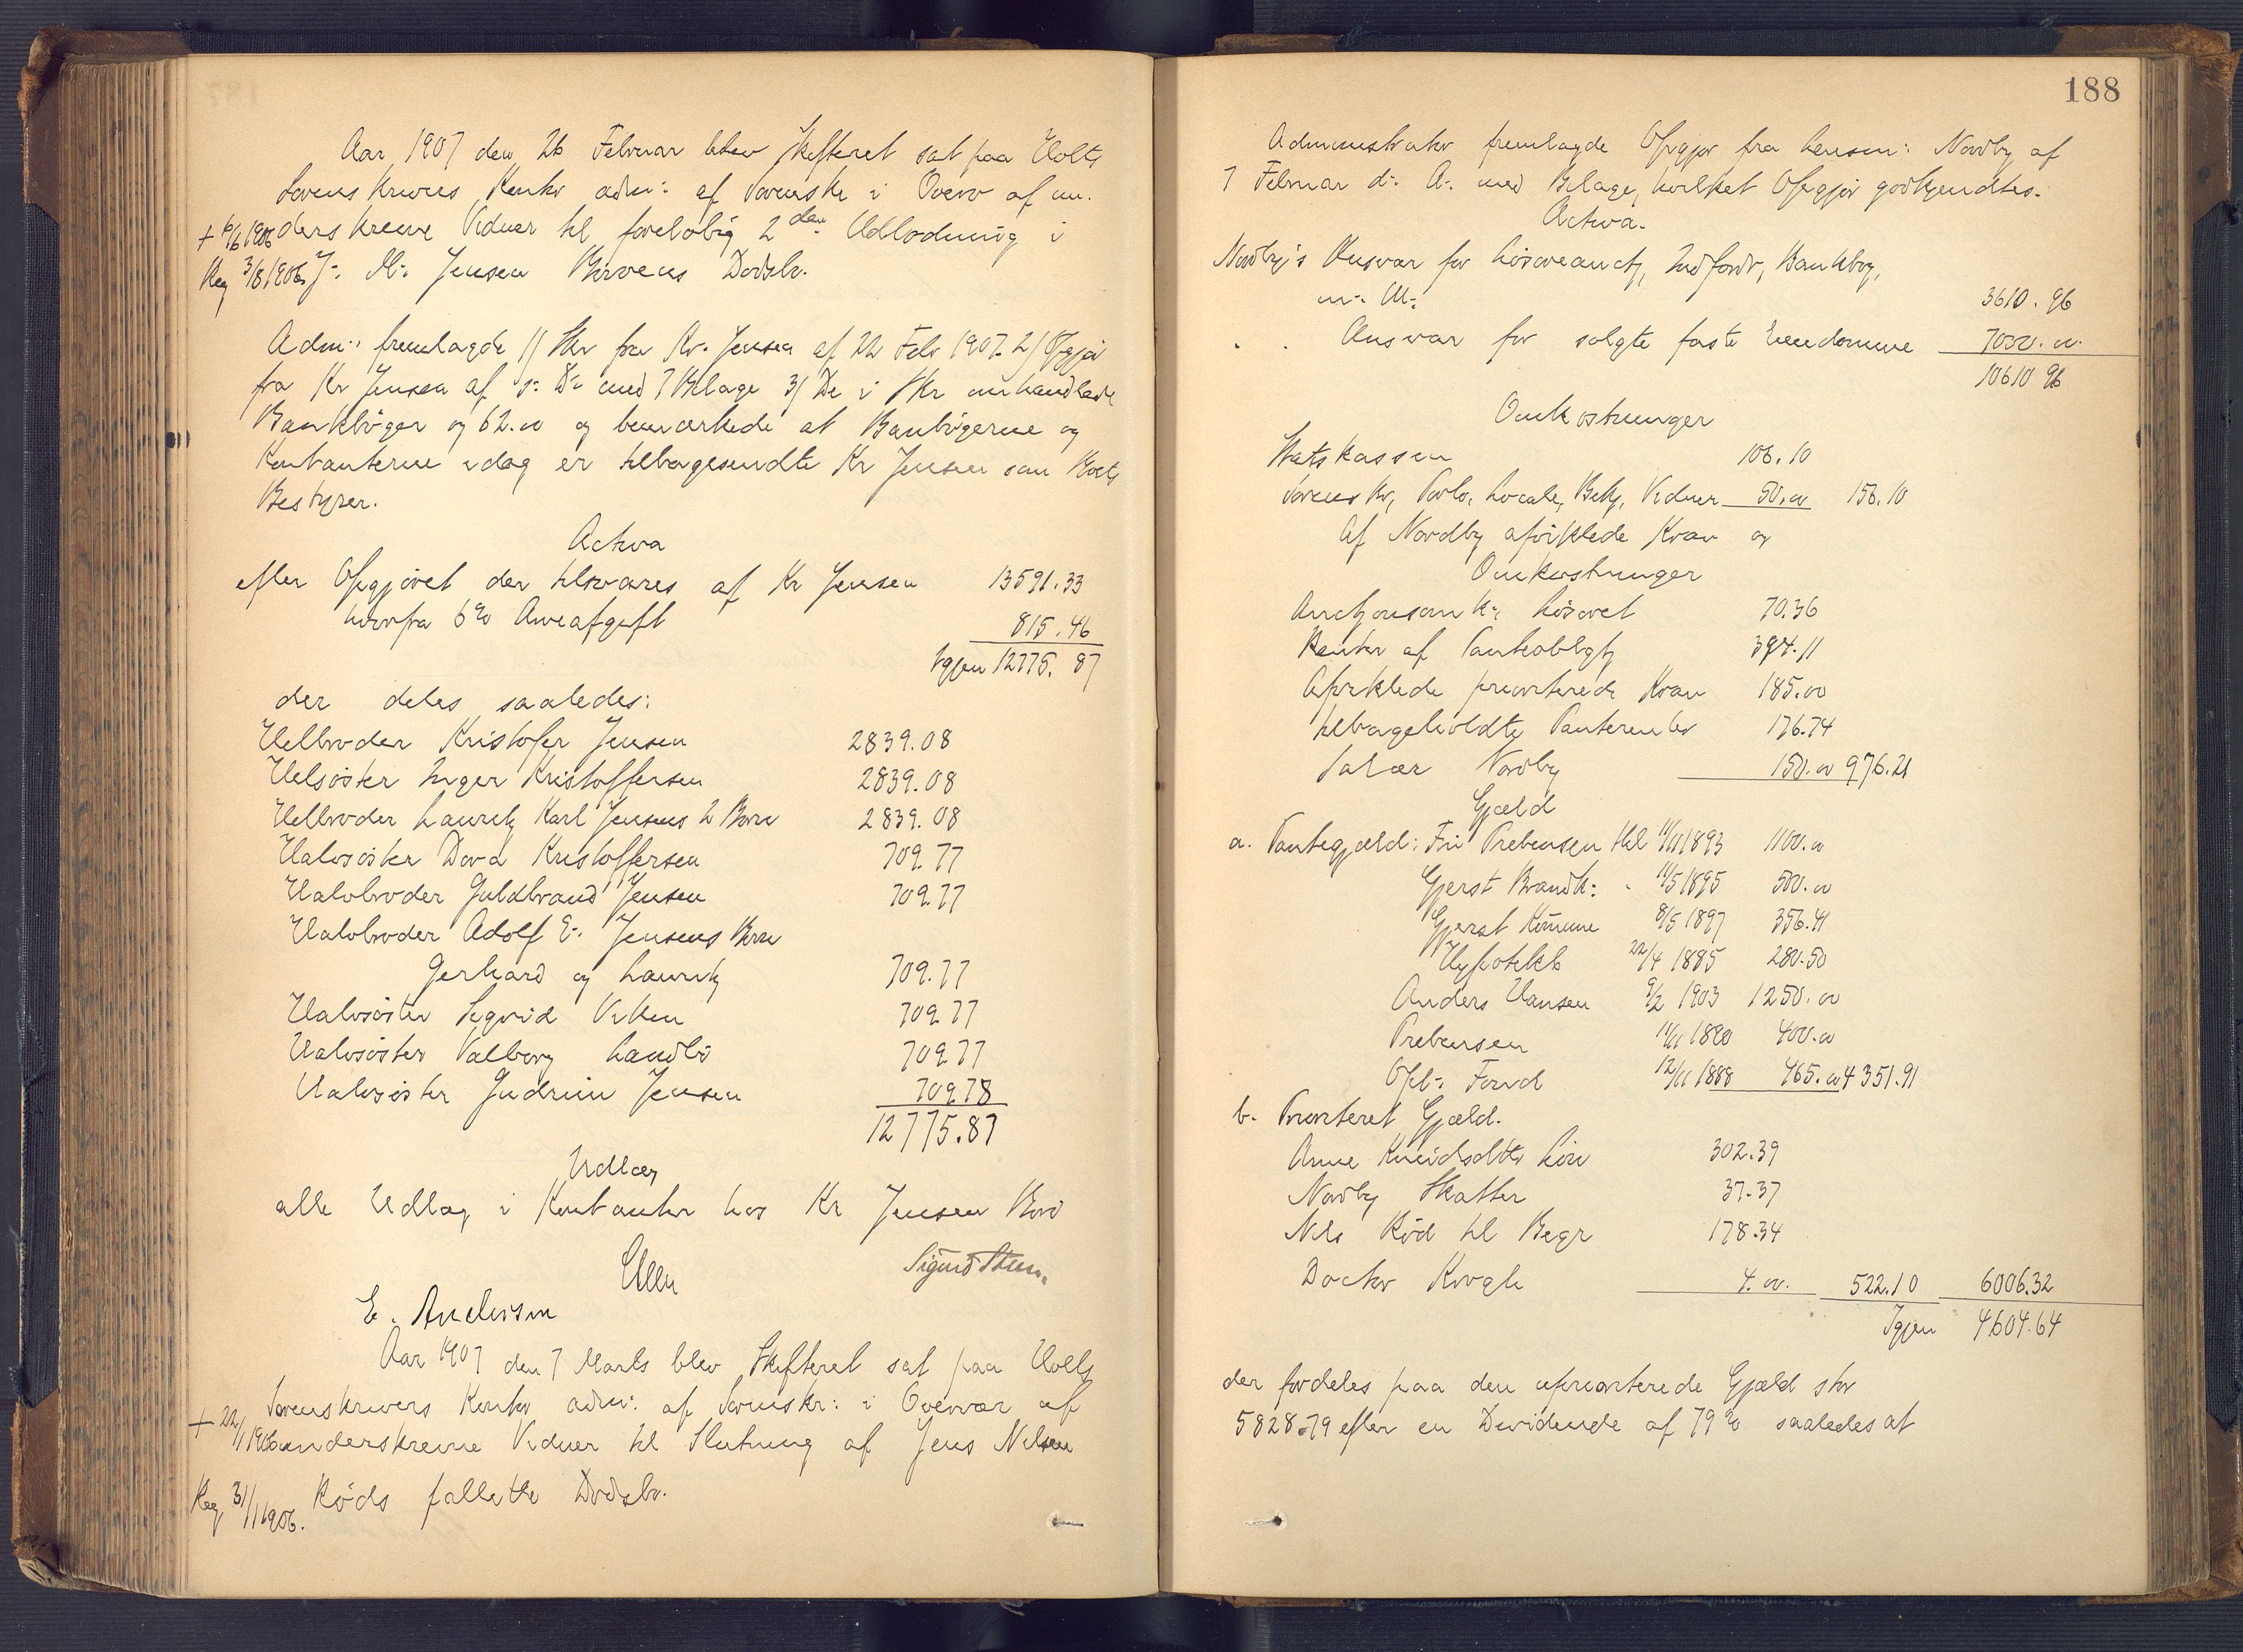 Aar 1907 den 26 Februar blev Skifteret sat paa Holts
Sorenskrivers Kontor adm: af Sorenskr i Overv af un-
+ 16/6 1906 derskrevne Vidner til foreløbig 2den Udlodning i
Reg 3/8 1906 J. M. Jensen Dødsbo.
Adm: fremlagde 1/ Skr fra Kr. Jensen af 22 Febr 1907. 2/ Opgjør
fra Kr Jensen af s: D: med 7 Bilage 3/ De i Skr omhandlede
Bankbøger og 62.00 og bemærkede at Bankbøgerne og
Kontanterne idag er tilbagesendte Kr Jensen som Boets
Bestyrer.
Activa
efter Opgjøret der tilsvares af Kr Jensen 13591.33
hvorfra 6% Arveafgift 815.46
Igjen 12775.87
der deles saaledes:
Helbroder Kristofer Jensen 2839.08
Helsøster Inger Kristoffersen 2839.08
Helbroder Lauritz Karl Jensens 2 Børn 2839.08
Halvsøster Dora Kristoffersen 709.77
Halvbroder Guldbrand Jensen 709.77
Halvbroder Adolf E. Jensens Børn
Gerhard og Lauritz 709.77
Halvsøster Sigrid Viken 709.77
Halvsøster Valborg Landbø 709.77
Halvsøster Gudrun Jensen 709.78
12775.87
Udlæg
alle Udlæg i Kontanter hos Kr Jensen
Sigurd
E. Anderssen
Aar 1907 den 7 Marts blev Skifteret sat paa Holts
Sorenskrivers Kontor adm: af Sorenskr: i Overvær af
+ 22/1 1906 underskrevne Vidner til Slutning af Jens Nilsen
Reg 31/1 1906. Røds fallitte Dødsbo.
188
Administrator fremlagde Opgjør fra Lensm: Nordby af
7 Februar d. A. med Bilage, hvilket Opgjør godkjendtes.
Activa.
Nordby's Ansvar for Løsøreauct, Indfordr, Bankbog,
m. M. 3610.96
" " Ansvar for solgte faste Eiendomme 7000.00
10610 96
Omkostninger
Statskassen 106.10
Sorenskr, Porto, Locale, Bekj, Vidner 50.00 156.10
Af Nordby afviklede Krav og
Omkostninger
Auctionsomk: Løsøret 70.36
Renter af Panteobligtj 394.11
Afviklede prioriterede Krav 185.00
tilbageholdte Panterenter 176.74
Salær Nordby 150.00 976.21
Gjæld
a. Pantegjæld: Fru Prebensen tkl 11/11 1893 1100.00
Gjerst Brandk: " 11/5 1895 500.00
Gjerst Komune 8/5 1897 356.41
Hypothkb 22/4 1885 280.50
Anders Hansen 9/2 1903 1250.00
Prebensen 11/11 1890 400.00
Opl: Fond 12/11 1888 465.00 4351.91
b. Prioriteret Gjæld.
Anne Knudsdtr Løn 302.39
Nordby Skatter 37.37
Nils Rød til Begr 178.34
Doctor Krogh 4.00. 522.10 6006.32
Igjen 4604.64
der fordeles paa den upriorterede Gjæld stor
5828.79 efter en Dividende af 79% saaledes at